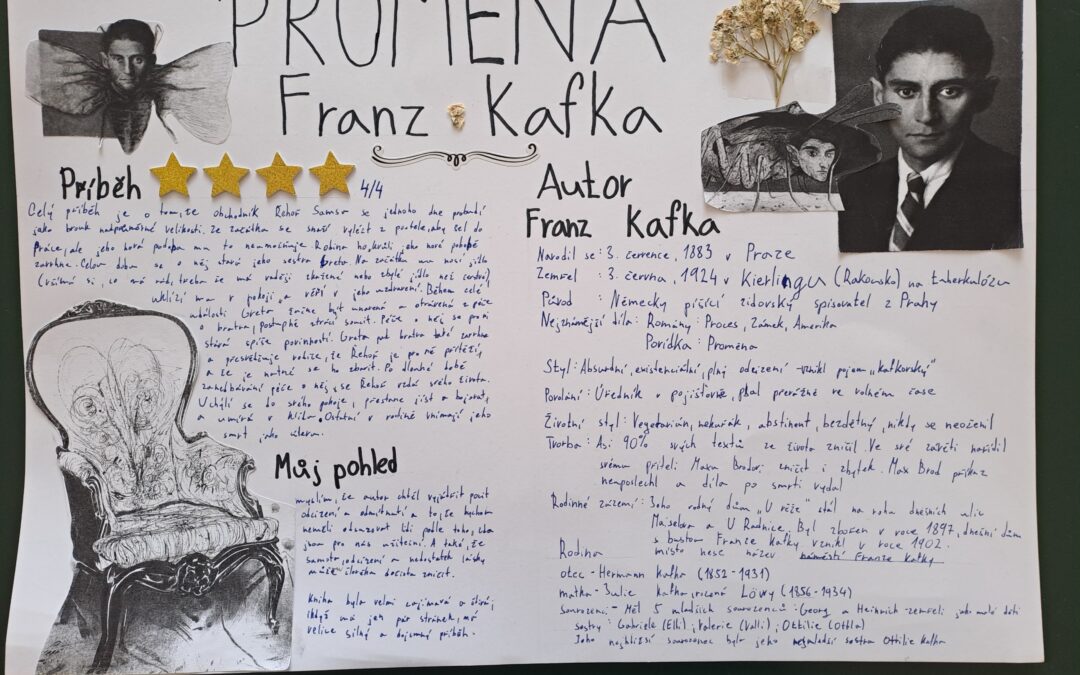 PROMĚNA
Franz Kafka
Příběh
4/4
Celý příběh je o tom, že obchodník Řehoř Samsa se jednoho dne probudí
jako brouk nadměrné velikosti. Ze začátku se snaží vylézt z postele, aby šel do
práce, ale jeho nová podoba mu to neumožňuje. Rodina ho, kvůli jeho nové podobě
zavrhne. Celou dobu se o něj stará jeho sestra Greta. Na začátku mu nosí jídlo
(všímá si, co má rád, třeba že má raději zkažené nebo zbylé jídlo než čerstvé)
uklízí mu v pokoji a věří v jeho uzdravení. Během celé
události Greta začne být unavená a otrávená z péče
o bratra, postupně ztrácí soucit. Péče o něj se pro ni
stává spíše povinností. Greta pak bratra také zavrhne
a přesvědčuje rodiče, že Řehoř je pro ně přítěží,
a že je nutné se ho zbavit. Po dlouhé době
zanedbávání péče o něj, se Řehoř vzdá svého života.
Uchýlí se do svého pokoje, přestane jíst a bojovat,
a umírá v klidu. Ostatní v rodině vnímají jeho
smrt jako úlevu.
Můj pohled
myslím, že autor chtěl vyjádřit pocit
odcizení a odmítnutí a to, že bychom
neměli odsuzovat lidi podle toho, zda
jsou pro nás užiteční. A také, že
samota, odcizení a nedostatek lásky
může člověka dočista zničit.
Kniha byla velmi zajímavá a čtivá,
i když má jen pár stránek, má
velice silný a dojemný příběh.
Autor
Franz Kafka
Narodil se: 3. července, 1883 v Praze
Zemřel : 3. června, 1924 v Kierlingu (Rakousko) na tuberkulózu
Původ : Německy píšící židovský spisovatel z Prahy
Nejznámější díla: Romány: Proces, Zámek, Amerika
Povídka: Proměna
Styl: Absurdní, existenciální, plný odcizení - vznikl pojem „kafkovský"
Povolání: Úředník v pojišťovně, psal převážně ve volném čase
Životní styl: Vegetarián, nekuřák, abstinent, bezdětný, nikdy se neoženil
Tvorba: Asi 90% svých textů ze života zničil. Ve své závěti nařídil
svému příteli Maxu Brodovi zničit i zbytek. Max Brod příkaz
neuposlechl a díla po smrti vydal
Rodinné zázemí: Jeho rodný dům „U věže" stál na rohu dnešních ulic
Maiselova a U Radnice. Byl zbořen v roce 1897, dnešní dům
s bustou Franze Kafky vznikl v roce 1902.
místo nese název náměstí Franze Kafky
Rodina
otec - Hermann Kafka (1852-1931)
matka - Julie Kafka, rozená Löwy (1856-1934)
sourozenci - Měl 5 mladších sourozenců: Georg a Heinrich zemřeli jako malé děti
sestry: Gabriele (Elli), Valerie (Valli), Ottilie (Ottla)
Jeho nejbližší sourozenec byla jeho nejmladší sestra Ottilie Kafka